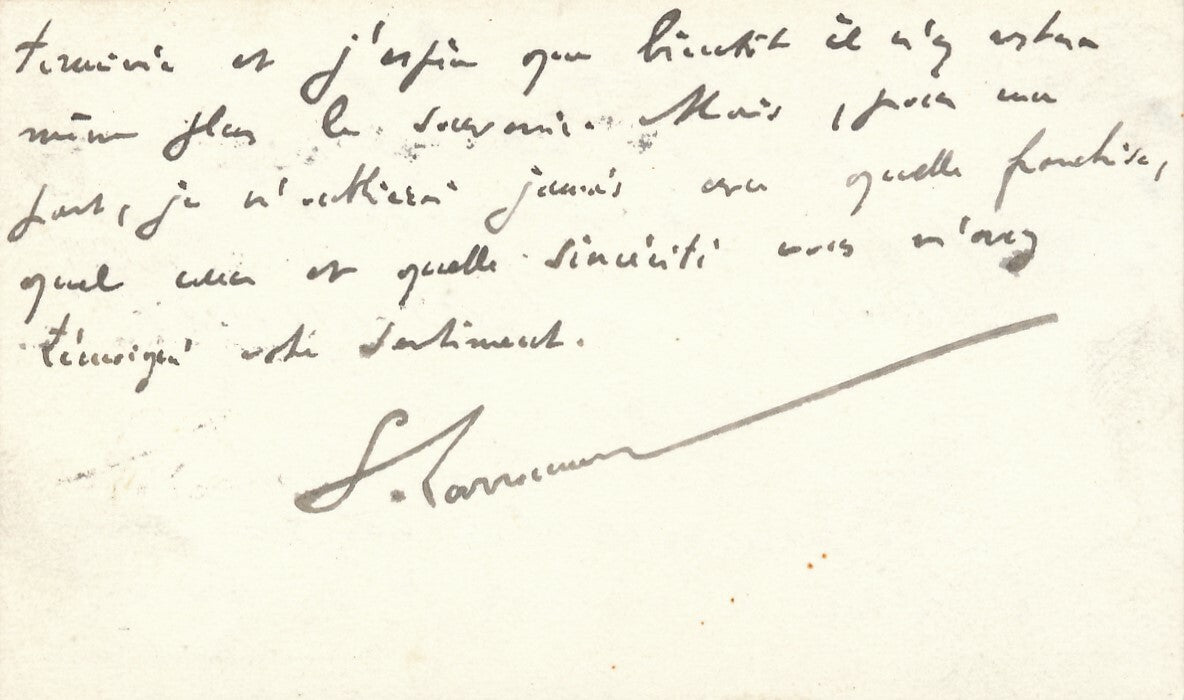 terminée et j'espère que bientôt il n'en restera
même plus le souvenir. Mais, pour ma
part, je n'oublierai jamais avec quelle franchise,
quel cœur et quelle sincérité vous m'avez
témoigné votre sentiment.